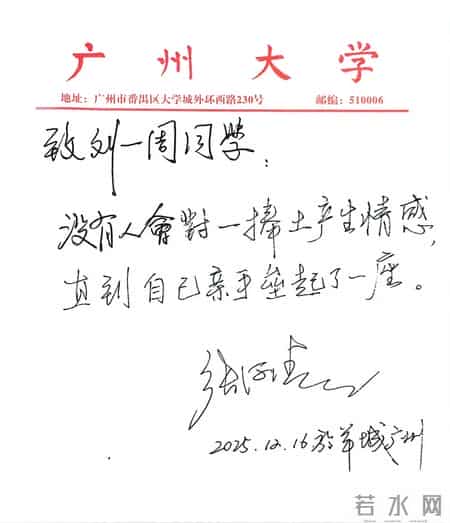 广州大学
地址：广州市番禺区大学城外环西路230号 邮编：510006
致刘一周同学：
没有人會對一捧土产生情感，
直到自己亲手垒起了一座。
2025.12.16於羊城广州
若水网
ruoshui.com